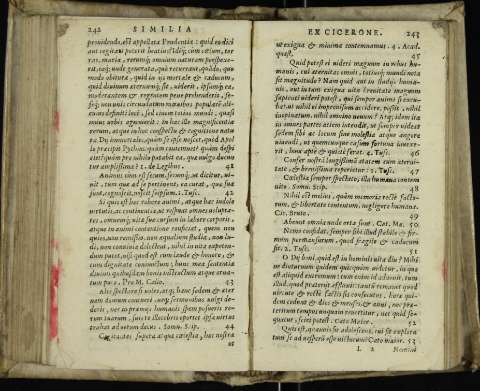 242 SIMILIA
prouidendo, est appellata Prudentia: quid eo dici
aut cogitari poterit beatius? Idémq; cum cœlum, ter
ras, maria, rerumq́; omnium naturam perspexe-
rit, eaq́; unde generata, quò recurrant, quãdo, quo
modo obitura, quid in iis mortale & caducum,
quid diuinum æternumq́; sit, uiderit, ipsumq́; ea
moderantem & regentem penè prehenderit, se-
seq́; non unis circundatum mœnibus popularẽ ali-
cuius definiti loci, sed ciuem totius mundi, quasi
unius urbis agnouerit: in hac ille magnificentia
rerum, atque in hoc conspectu & cognitione natu
ræ, Dij immortales, quàm se ipse noscet, quod Apol
lo præcipit Pythius: quàm contemnet? quàm despi
ciet? quàm pro nihilo putabit ea, quæ uulgo ducun
tur amplissima? 1. de Legibus. 42
Animus cùm est secum, secumq́; ut dicitur, ui-
uit, tum quæ ad se pertinent, ea curat, quæ sua
sunt, cognoscit, noscit seipsum. 1. Tusc. 42
Si quis est hoc robore animi, atque hac indole
uirtutis, ac continentiæ, ut respuat omnes uolupta-
tes, omnemq́; uitæ suæ cursum in labore corporis,
atque in animi contentione conficiat, quem non
quies, non remissio, non æqualium studia, non lu-
di, non conuiuia delectent, nihil in uita expeten-
dum putet, nisi quod est cum laude & honore, &
cum dignitate coniunctum, hunc mea sententia
diuinis quibusdam bonis instructum atque orna-
tum puto. Pro M. Cælio. 43
Altè spectare si uoles, atq; hanc sedem & æter
nam domum contueri, neq; sermonibus uulgi de-
deris, nec in præmijs humanis spem posueris re-
rum tuarum, suis te illecebris oportet ipsa uirtus
trahat ad uerum decus. Somn. Scip. 44
Cogitantes supera atque cœlestia, hæc nostra
ut
EX CICERONE. 243
ut exigua & minima contemnamus. 4. Acad.
quæst. 45
Quid potest ei uideri magnum in rebus hu-
manis, cui æternitas omnis, totiusq́; mundi nota
sit magnitudo? Nam quid aut in studijs huma-
nis, aut in tam exigua uitæ breuitate magnum
sapienti uideri potest, qui semper animo sic excu-
bat, ut nihil ei improuisum accidere possit, nihil
inopinatum, nihil omnino nouum? Atq; idem ita
in omnes partes aciem intendit, ut semper uideat
sedem sibi ac locum sine molestia atque angore
uiuendi, ut quemcunque casum fortuna inuexe-
rit, hunc aptè & quietè ferat. 4. Tusc. 46
Confer nostram longissimam ætatem cum æterni-
tate, & breuissima reperietur. 1. Tusc. 47
Cœlestia semper spectato, illa humana contem
nito. Somn. Scip. 48
Nihil est melius, quàm memoria rectè facto-
rum, & libertate contentum, negligere humana.
Cic. Bruto. 49
Abeunt omnia unde orta sunt. Cat. Ma. 50
Nemo confidat, semper sibi illud stabile & fir-
mum permansurum, quod fragile & caducum
sit. 2. Tusc. 51
O Dij boni, quid est in hominis uita diu? Mihi
ne diuturnum quidem quicquam uidetur, in quo
est aliquid extremum: cum enim id aduenit, tum
illud, quod præterijt, effluxit: tantùm remanet quod
uirtute & rectè factis sis consecutus, horæ qui-
dem cedunt & dies & menses & anni, nec præ-
teritum tempus unquam reuertitur, nec quid se-
quatur, sciri potest. Cato Maior. 52
Quis est, quamuis sit adolescens, cui sit explora
tum se ad uesperum esse uicturum? Cato maior. 53
L 2 Nemini